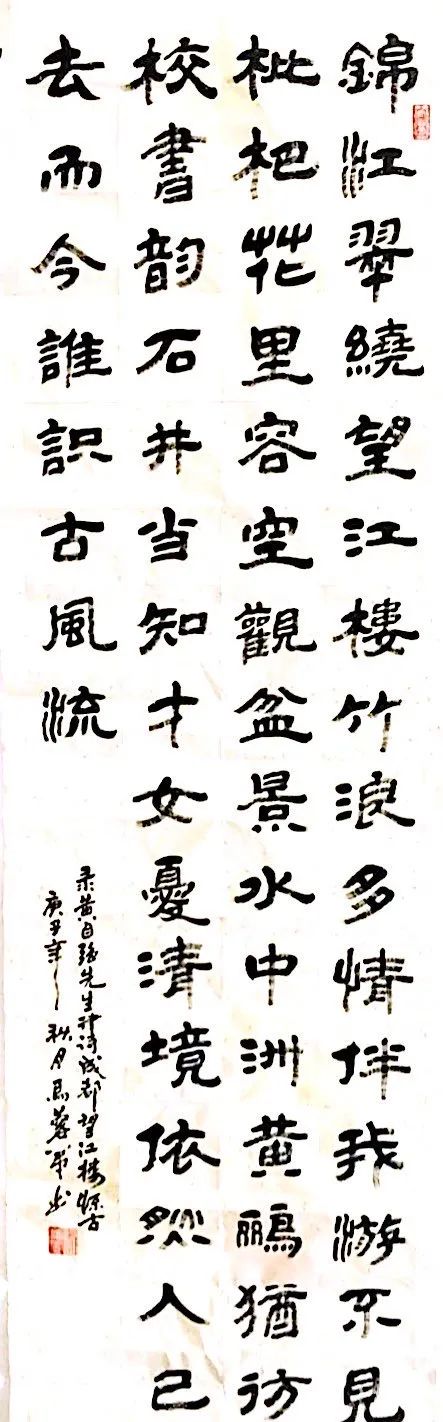 錦江翠繞望江樓竹浪多情伴我游不見
枇杷花里容空觀盆景水中洲黄鸝猶彷
校書韵石井当知才女憂清境依然人已
去而今誰識古風流
录黄自强先生诗成都望江楼怀古
年秋月馬蓉书